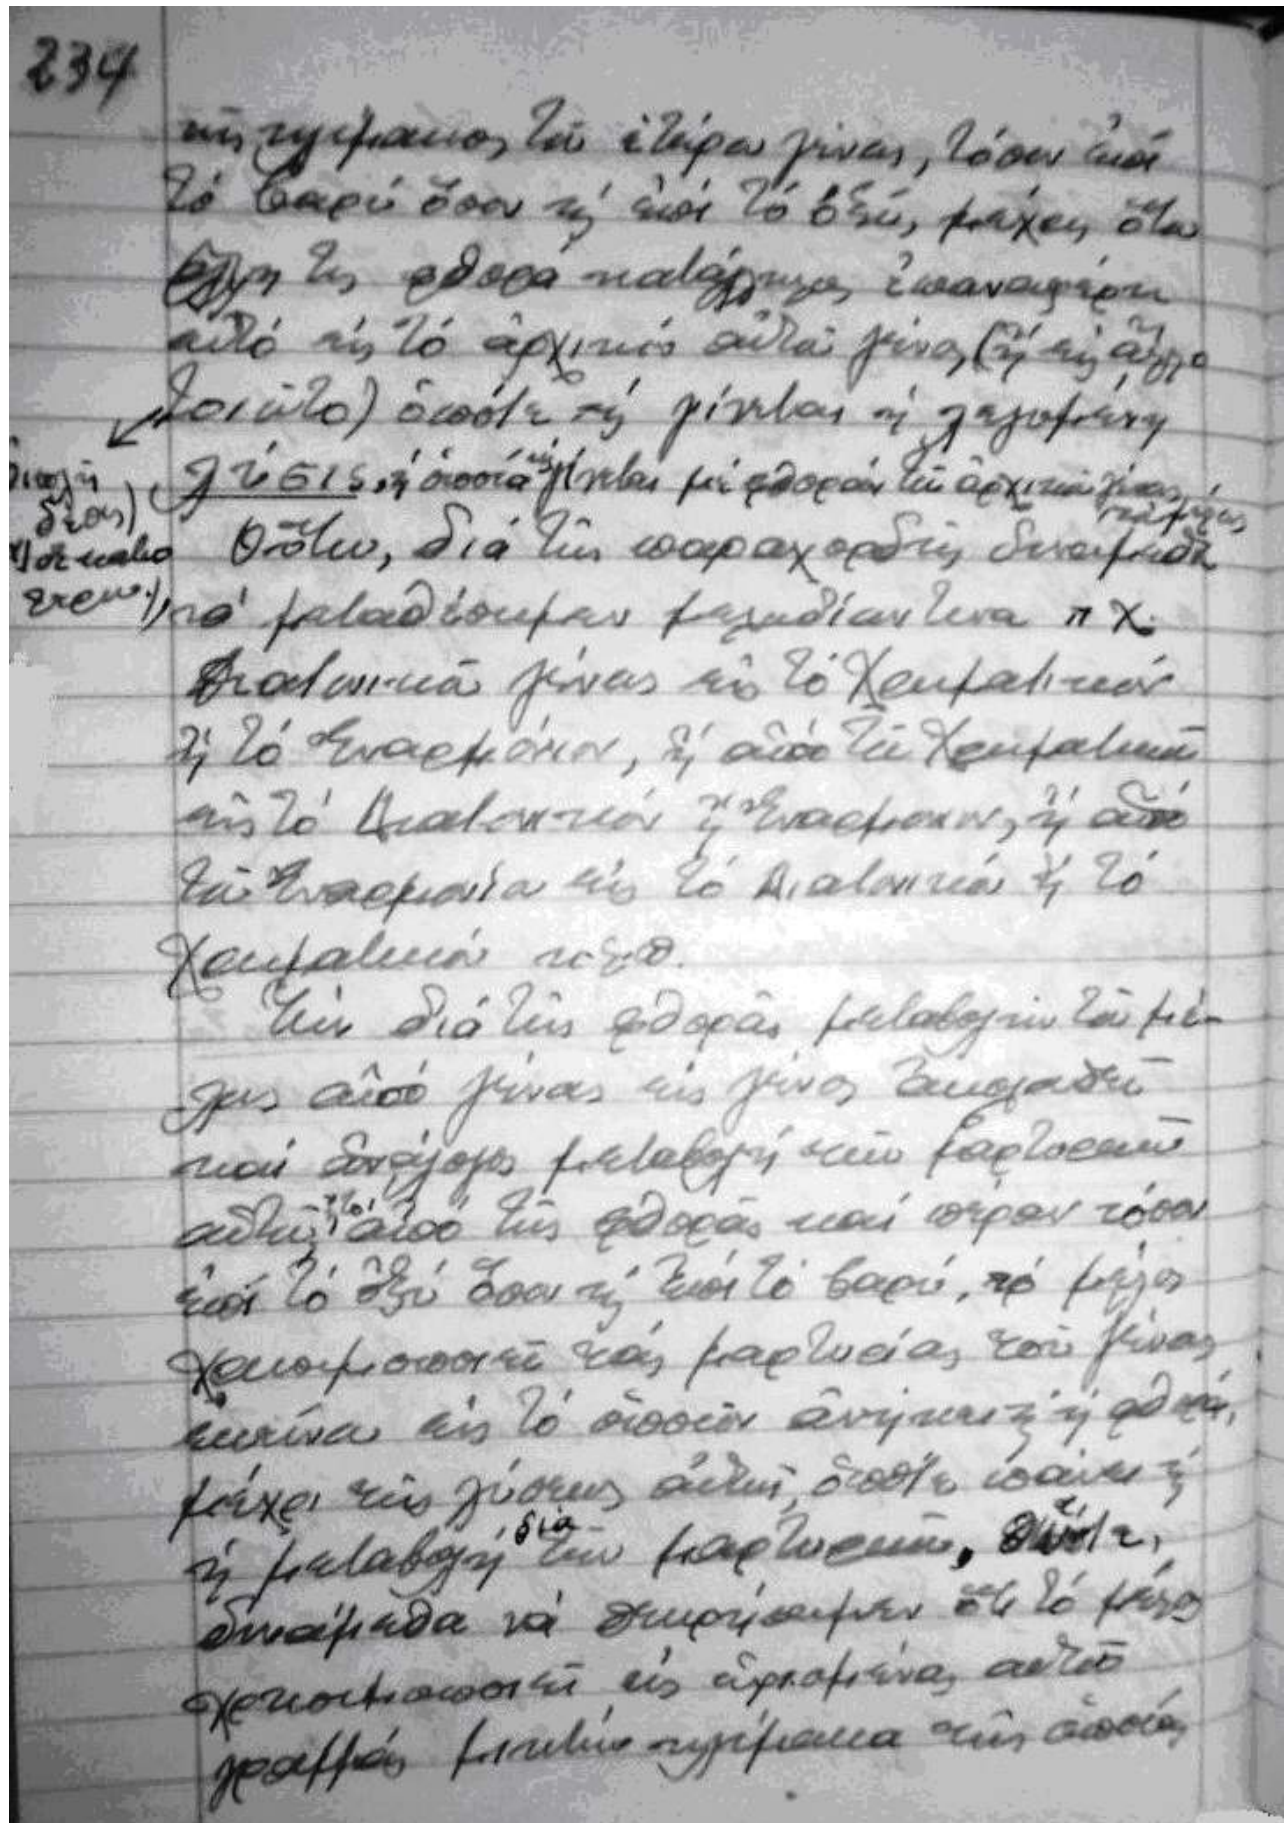 234
τῆς κλίμακος τοῦ ἑτέρου γένους, τόσον ἐπί
τό βαρύ ὅσον καί ἐπί τό ὀξύ, μέχρις ὅτου
ἄλλη τις φθορά καταλλήλως ἐπαναφέρει
αὐτό εἰς τό ἀρχικόν αὐτοῦ γένος (ἤ εἰς ἄλλο
τοιοῦτο) ὁπότε καί γίνεται ἡ λεγομένη
λύσις, ἡ ὁποία γίνεται μέ φθοράν τοῦ ἀρχικοῦ γένους
τοῦ μέλους
Οὕτω, διά τῆς παραχορδῆς δυνάμεθα
νά μεταθέσωμεν μελωδίαν τινα π.χ.
Διατονικοῦ γένους εἰς τό Χρωματικόν
ἤ τό Ἐναρμόνιον, ἤ ἀπό τοῦ Χρωματικοῦ
εἰς τό Διατονικόν ἤ Ἐναρμόνιον, ἤ ἀπό
τοῦ Ἐναρμονίου εἰς τό Διατονικόν ἤ τό
Χρωματικόν
Τήν διά τῆς φθορᾶς μεταβολήν τοῦ μέ-
λους ἀπό γένους εἰς γένος ἀκολουθεῖ
καί ἀνάλογος μεταβολή τῶν μαρτυριῶν
αὐτοῦ, ἤτοι ἀπό τῆς φθορᾶς καί πέραν τόσον
ἐπί τό ὀξύ ὅσον καί ἐπί τό βαρύ, τό μέλος
χρησιμοποιεῖ τάς μαρτυρίας τοῦ γένους
ἐκείνου εἰς τό ὁποῖον ἀνήκει ἡ φθορά,
μέχρι τῆς λύσεως αὐτῆς, ὁπότε παύει καί
ἡ μεταβολή διά τῶν μαρτυριῶν,
δυνάμεθα νά θεωρήσωμεν ὅτι τό μέλος
χρησιμοποιεῖ εἰς ὡρισμένας αὐτοῦ
γραμμάς μικτήν κλίμακα τῆς ὁποίας